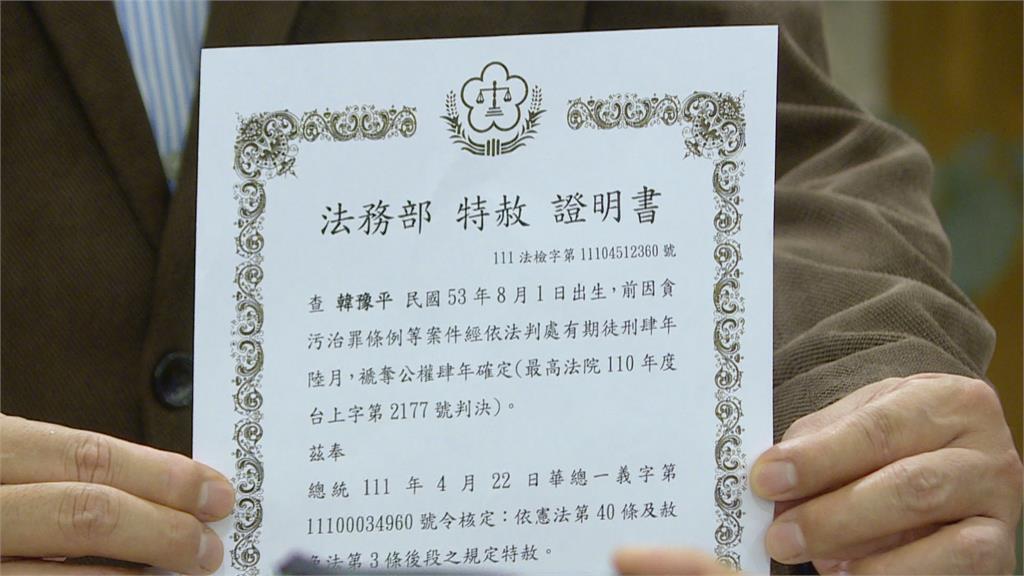 法務部 特赦 證明書
111法檢字第11104512360號
查 韓豫平 民國53年8月1日出生，前因貪
污治罪條例等案件經依法判處有期徒刑肆年
陸月，褫奪公權肆年確定(最高法院110年度
台上字第2177號判決)。
茲奉
總統 111 年 4 月 22 日華總一義字第
11100034960 號令核定：依憲法第40條及赦
免法第3條後段之規定特赦。